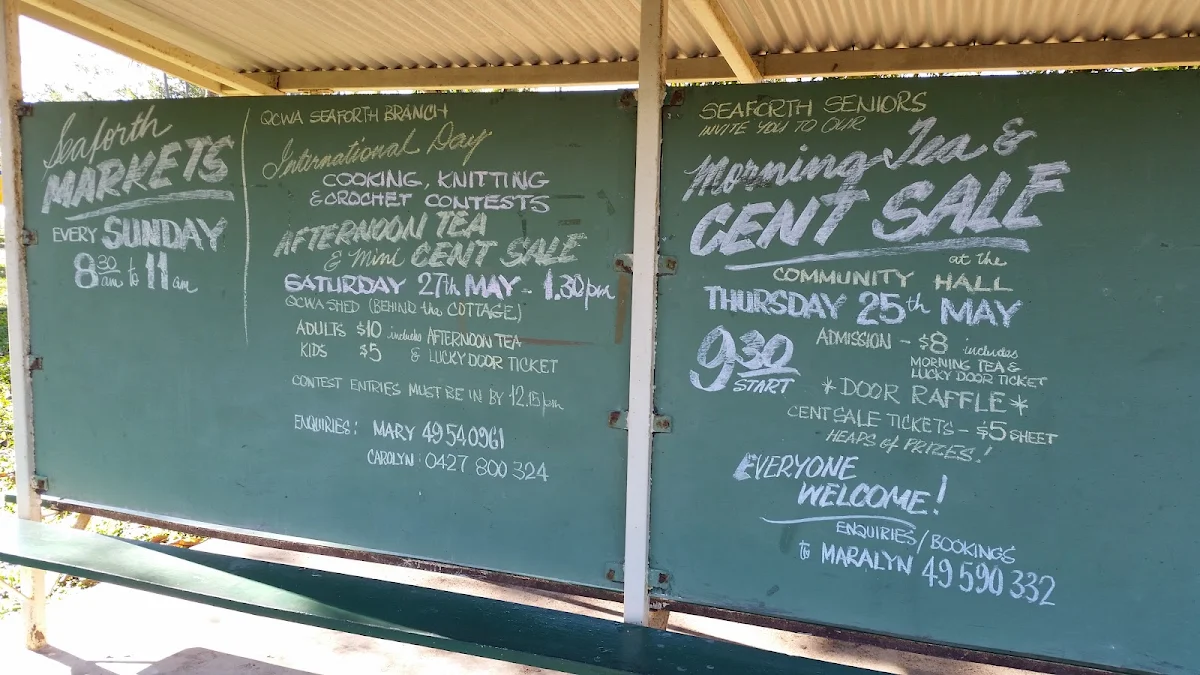 Seaforth
MARKETS
EVERY SUNDAY
8 30 am to 11 am
QCWA SEAFORTH BRANCH
International Day
COOKING, KNITTING
& CROCHET CONTESTS
AFTERNOON TEA
& Mini CENT SALE
SATURDAY 27th MAY - 1.30pm
QCWA SHED (BEHIND the COTTAGE)
ADULTS $10 includes AFTERNOON TEA
KIDS $5 & LUCKY DOOR TICKET
CONTEST ENTRIES MUST BE IN BY 12.15pm
ENQUIRIES: MARY 49 540961
CAROLYN: 0427 800 324
SEAFORTH SENIORS
INVITE YOU TO OUR
Morning Tea &
CENT SALE
at the
COMMUNITY HALL
THURSDAY 25th MAY
9 30
START
ADMISSION - $8 includes
MORNING TEA &
LUCKY DOOR TICKET
*DOOR RAFFLE*
CENT SALE TICKETS - $5 SHEET
HEAPS of PRIZES!
EVERYONE
WELCOME!
ENQUIRIES/BOOKINGS
to MARALYN 49 590 332